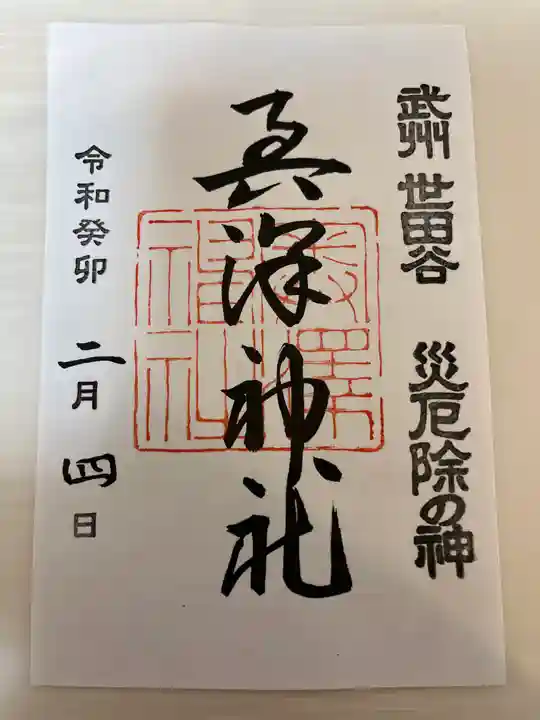 武州 世田谷 災厄除の神
奥澤神社
令和癸卯 二月四日